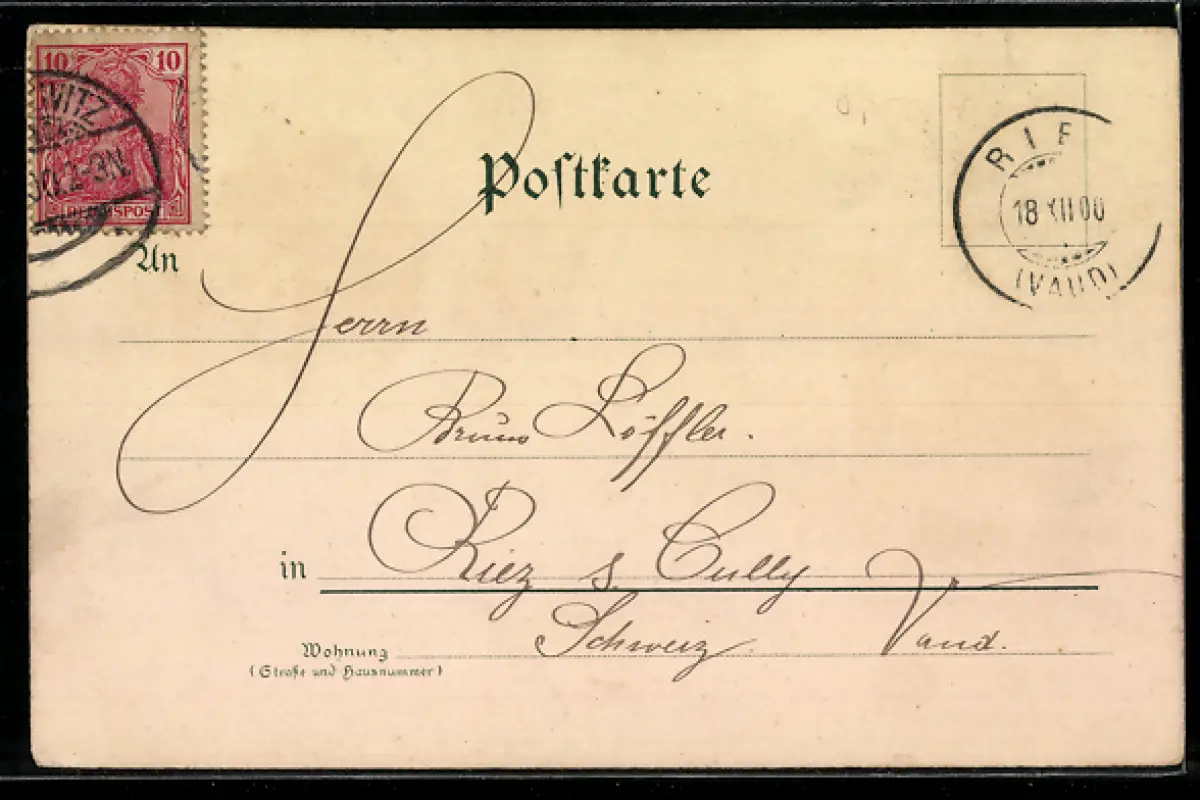 10 10
WITZ
00.2-3N
REICHSPOST
Postkarte
RIE
18 XII 00
(VAUD)
An
Herrn
Bruno Löffler.
in Riez s. Cully
Schweiz Vaud.
Wohnung
(Straße und Hausnummer)